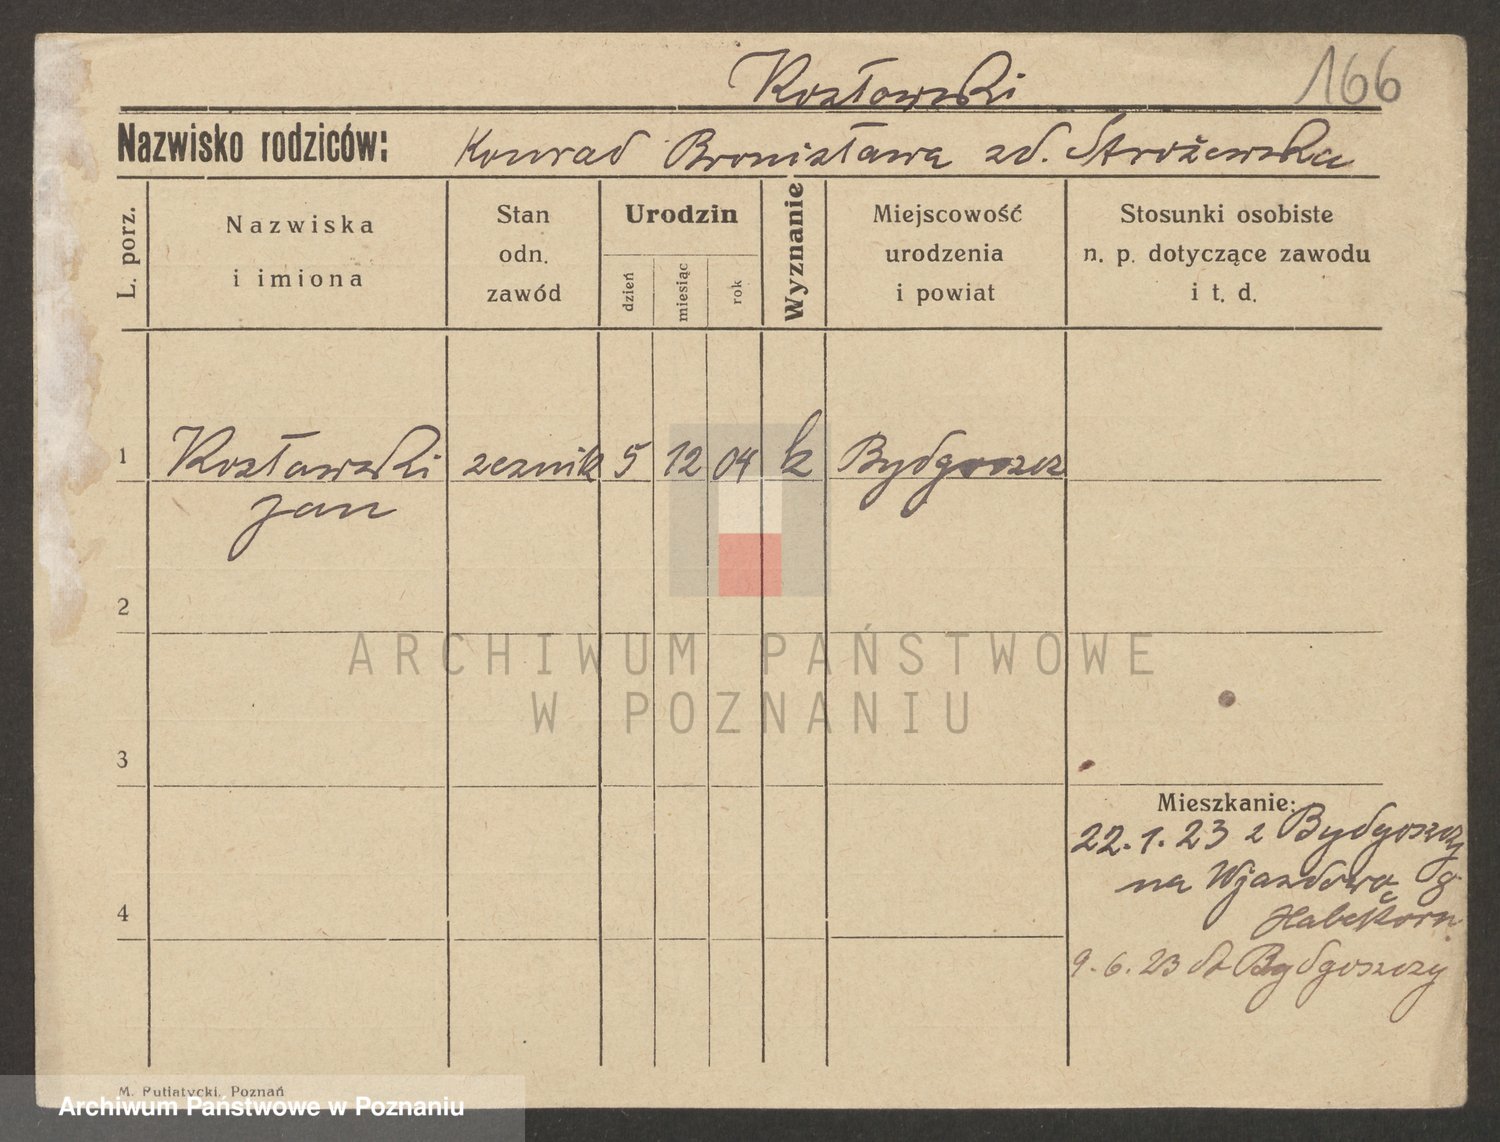 Kozłowski 166
Nazwisko rodziców: Konrad Bronisława zd. Strożewska
L. porz.
Nazwiska
i imiona
Stan
odn.
zawód
Urodzin
dzień
miesiąc
rok
Wyznanie
Miejscowość
urodzenia
i powiat
Stosunki osobiste
n. p. dotyczące zawodu
i t. d.
1 Kozłowski rzeźnik 5 12 04 k Bydgoszcz
Jan
2
ARCHIWUM PAŃSTWOWE
W POZNANIU
3
Mieszkanie:
22.1.23 z Bydgoszczy
na Wjazdową 9
4
Habekorn
9.6.23 do Bydgoszczy
M. Putiatycki, Poznań
Archiwum Państwowe w Poznaniu